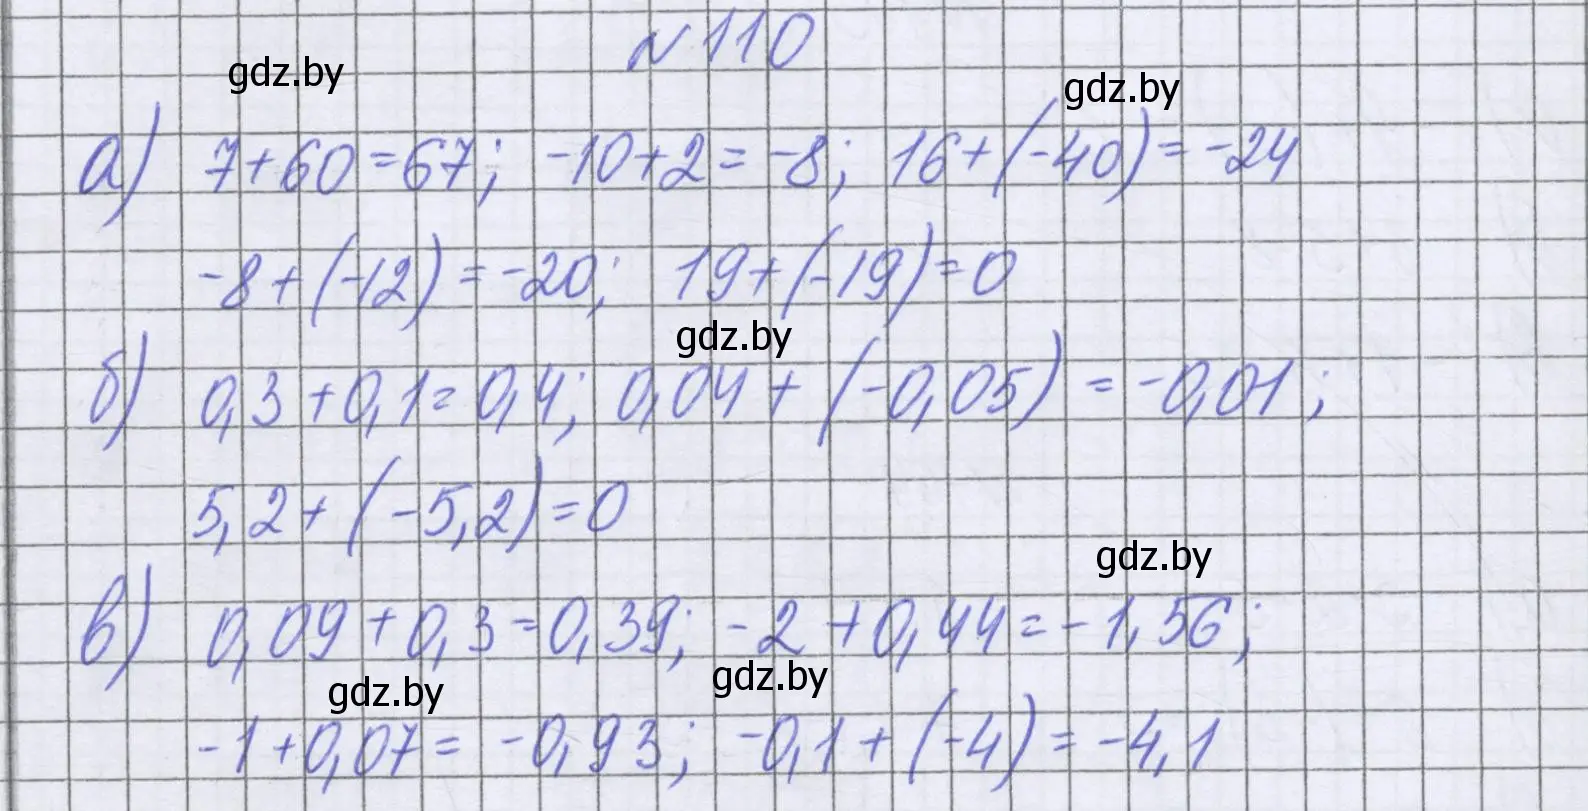 №110
gdz.by gdz.by
а) 7+60=67; -10+2=-8; 16+(-40)=-24
-8+(-12)=-20; 19+(-19)=0
gdz.by
б) 0,3+0,1=0,4; 0,04+(-0,05)=-0,01;
5,2+(-5,2)=0
gdz.by
в) 0,09+0,3=0,39; -2+0,44=-1,56;
gdz.by gdz.by
-1+0,07=-0,93; -0,1+(-4)=-4,1